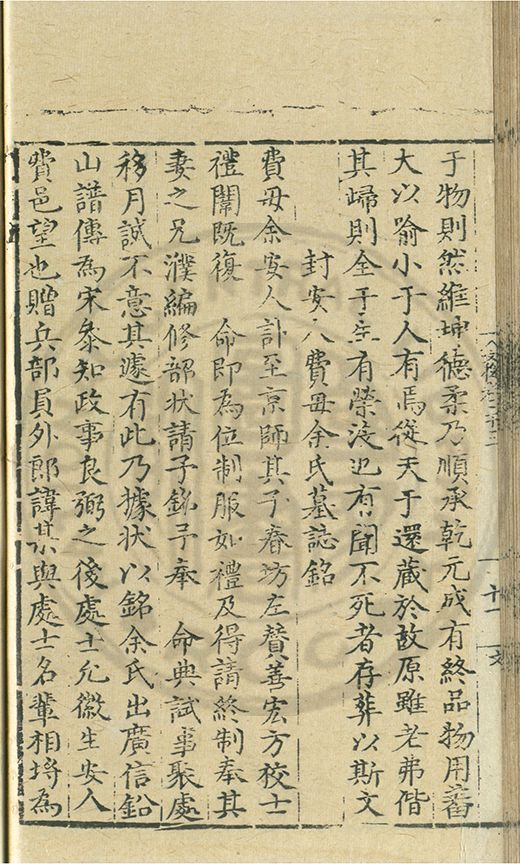 于物則然維坤德柔乃順承乾元成有終品物用蕃
大以喻小于人有焉從天于還藏於故原雖老弗偕
其歸則全于生有榮沒也有聞不死者存葬以斯文
封安人費母余氏墓誌銘
費母余安人訃至京師其子春坊左贊善宏方校士
禮闈既復　命即為位制服如禮及得請終制奉其
妻之兄濮編修韶狀請予銘予奉　命典試事聚處
移月誠不意其遽有此乃據狀以銘余氏出廣信鉛
山譜傳為宋參知政事良弼之後處士允徽生安人
費邑望也贈兵部員外郎諱某與處士名輩相埒為
十一
文